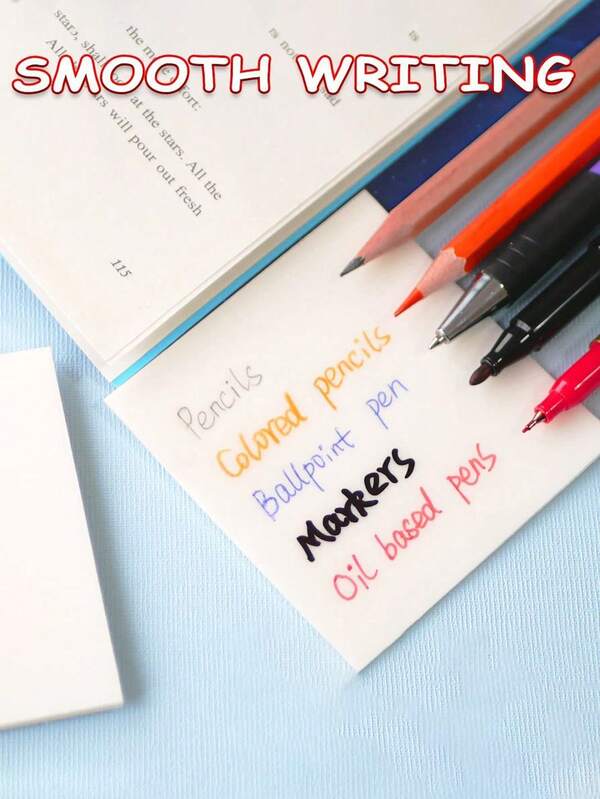 SMOOTH WRITING
the
shall at the stars. All the
will pour out fresh
115
Pencils
Colored pencils
Ballpoint pen
Markers
Oil based pens